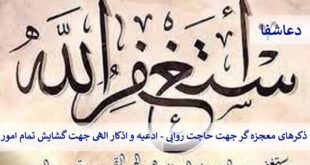 دعاشفا
استغفرالله
ذکرهای معجزه گر جهت حاجت روایی - ادعیه و اذکار الهی جهت گشایش تمام امور